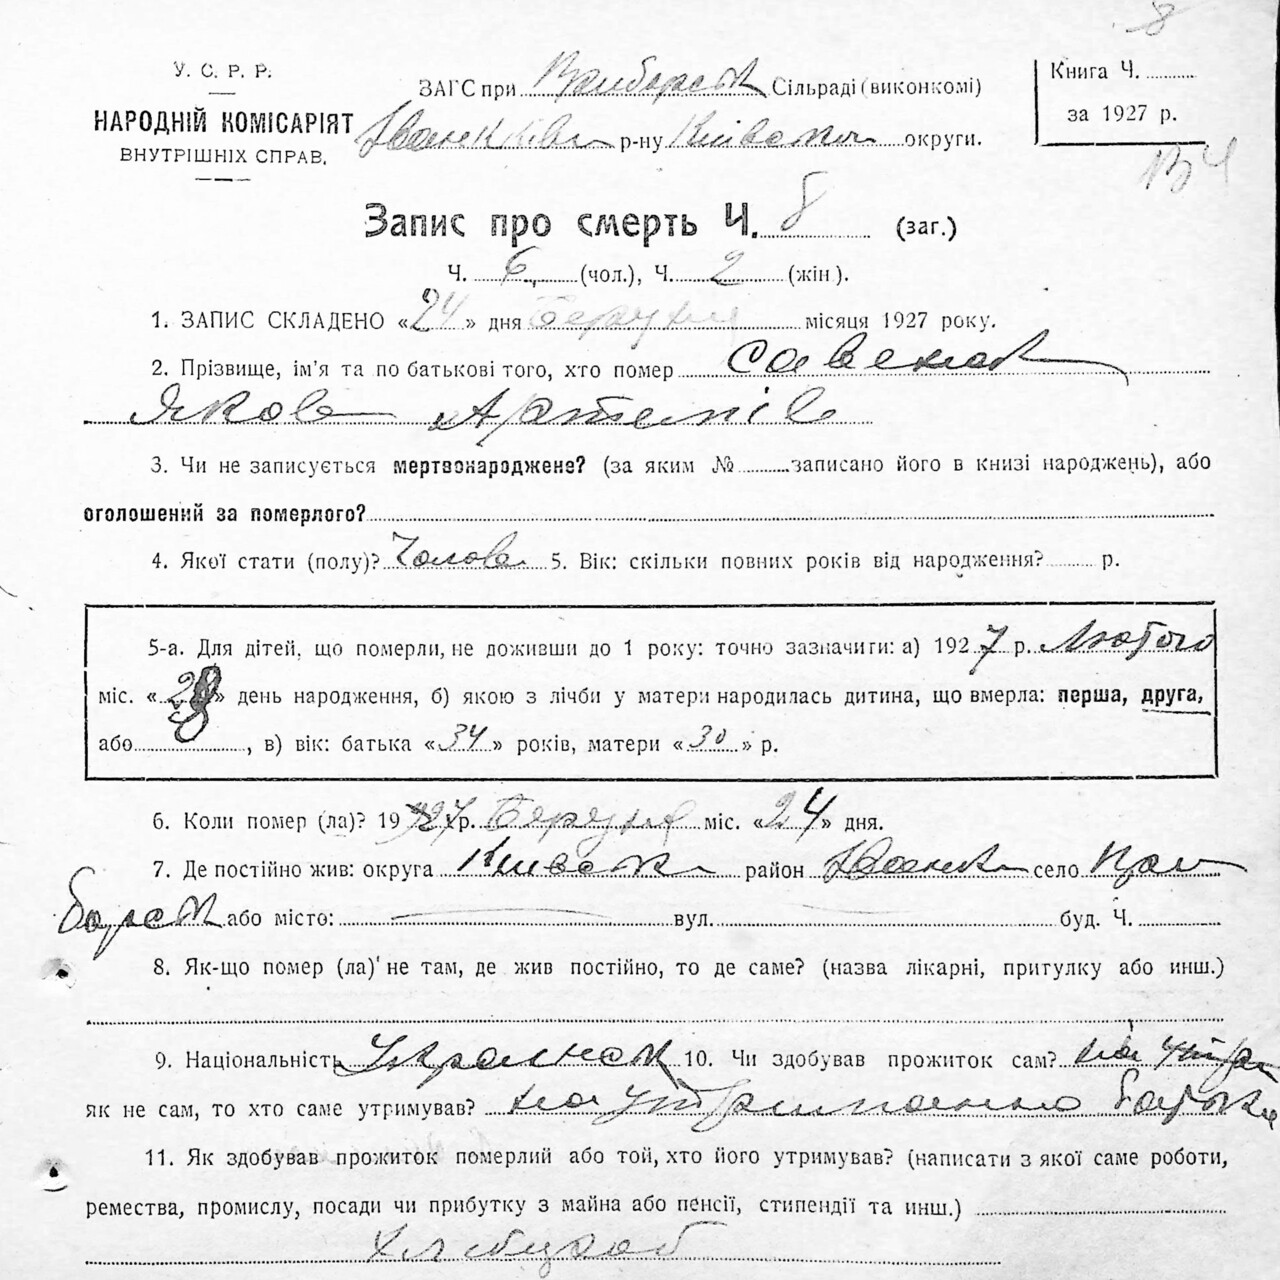 8
У. С. Р. Р.
НАРОДНІЙ КОМІСАРІЯТ
ВНУТРІШНІХ СПРАВ.
ЗАГС при Приборськ Сільраді (виконкомі)
Іванків р-ну Київськ округи.
Книга Ч.
за 1927 р.
Запис про смерть Ч. 8 (заг.)
Ч. 6 (чол.), Ч. 2 (жін).
1. ЗАПИС СКЛАДЕНО «24» дня Березня місяця 1927 року.
2. Прізвище, ім'я та по батькові того, хто помер Савенок
Яков Артемів
3. Чи не записується мертвонароджене? (за яким № записано його в книзі народжень), або
оголошений за померлого?
4. Якої стати (полу)? Чолов 5. Вік: скільки повних років від народження? р.
5-а. Для дітей, що померли, не доживши до 1 року: точно зазначити: а) 1927 р. Лютого
міс. «28» день народження, б) якою з лічби у матери народилась дитина, що вмерла: перша, друга,
або , в) вік: батька «34» років, матери «30» р.
6. Коли помер (ла)? 1927 р. Березня міс. «24» дня.
7. Де постійно жив: округа Київськ район Іванк село При
борськ або місто: вул. буд. Ч.
8. Як-що помер (ла) не там, де жив постійно, то де саме? (назва лікарні, притулку або инш.)
9. Національність Українск 10. Чи здобував прожиток сам? на
як не сам, то хто саме утримував? на утриманню батька
11. Як здобував прожиток померлий або той, хто його утримував? (написати з якої саме роботи,
ремества, промислу, посади чи прибутку з майна або пенсії, стипендії та инш.)
Хлібороб